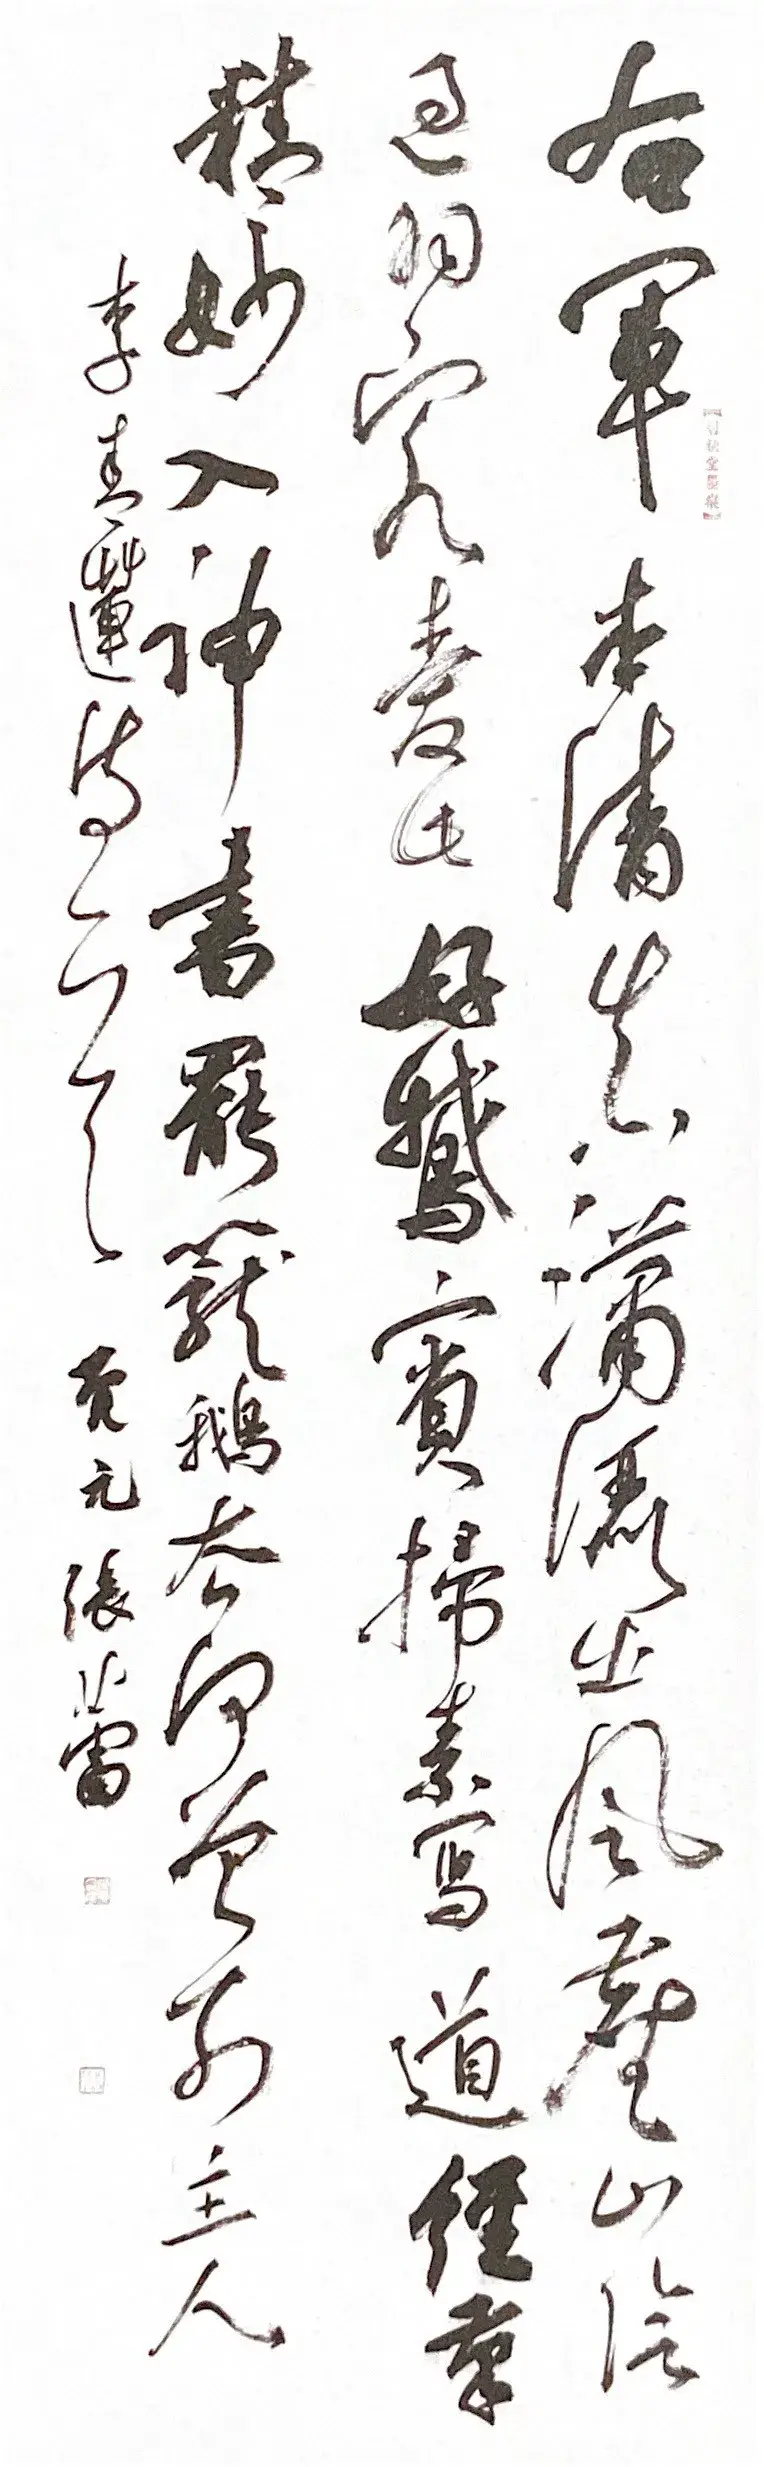 右軍本清真瀟灑出風塵山陰
過羽客愛此好鵝賓掃素寫道經筆
精妙入神書罷籠鵝去何曾別主人
李青蓮詩一首 元張蕾